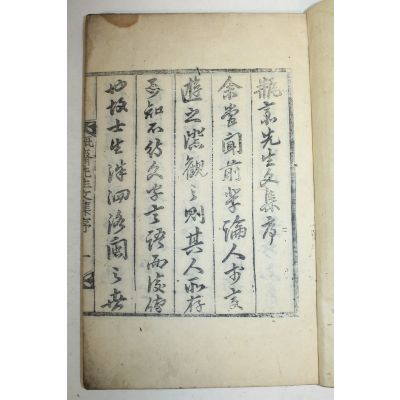 瓶窩先生文集序
余嘗聞前輩論人方交
遊之際觀之則其人所存
可知不待文字言語而後傳
也故士生洙泗洛閩之世
先生文集序 一